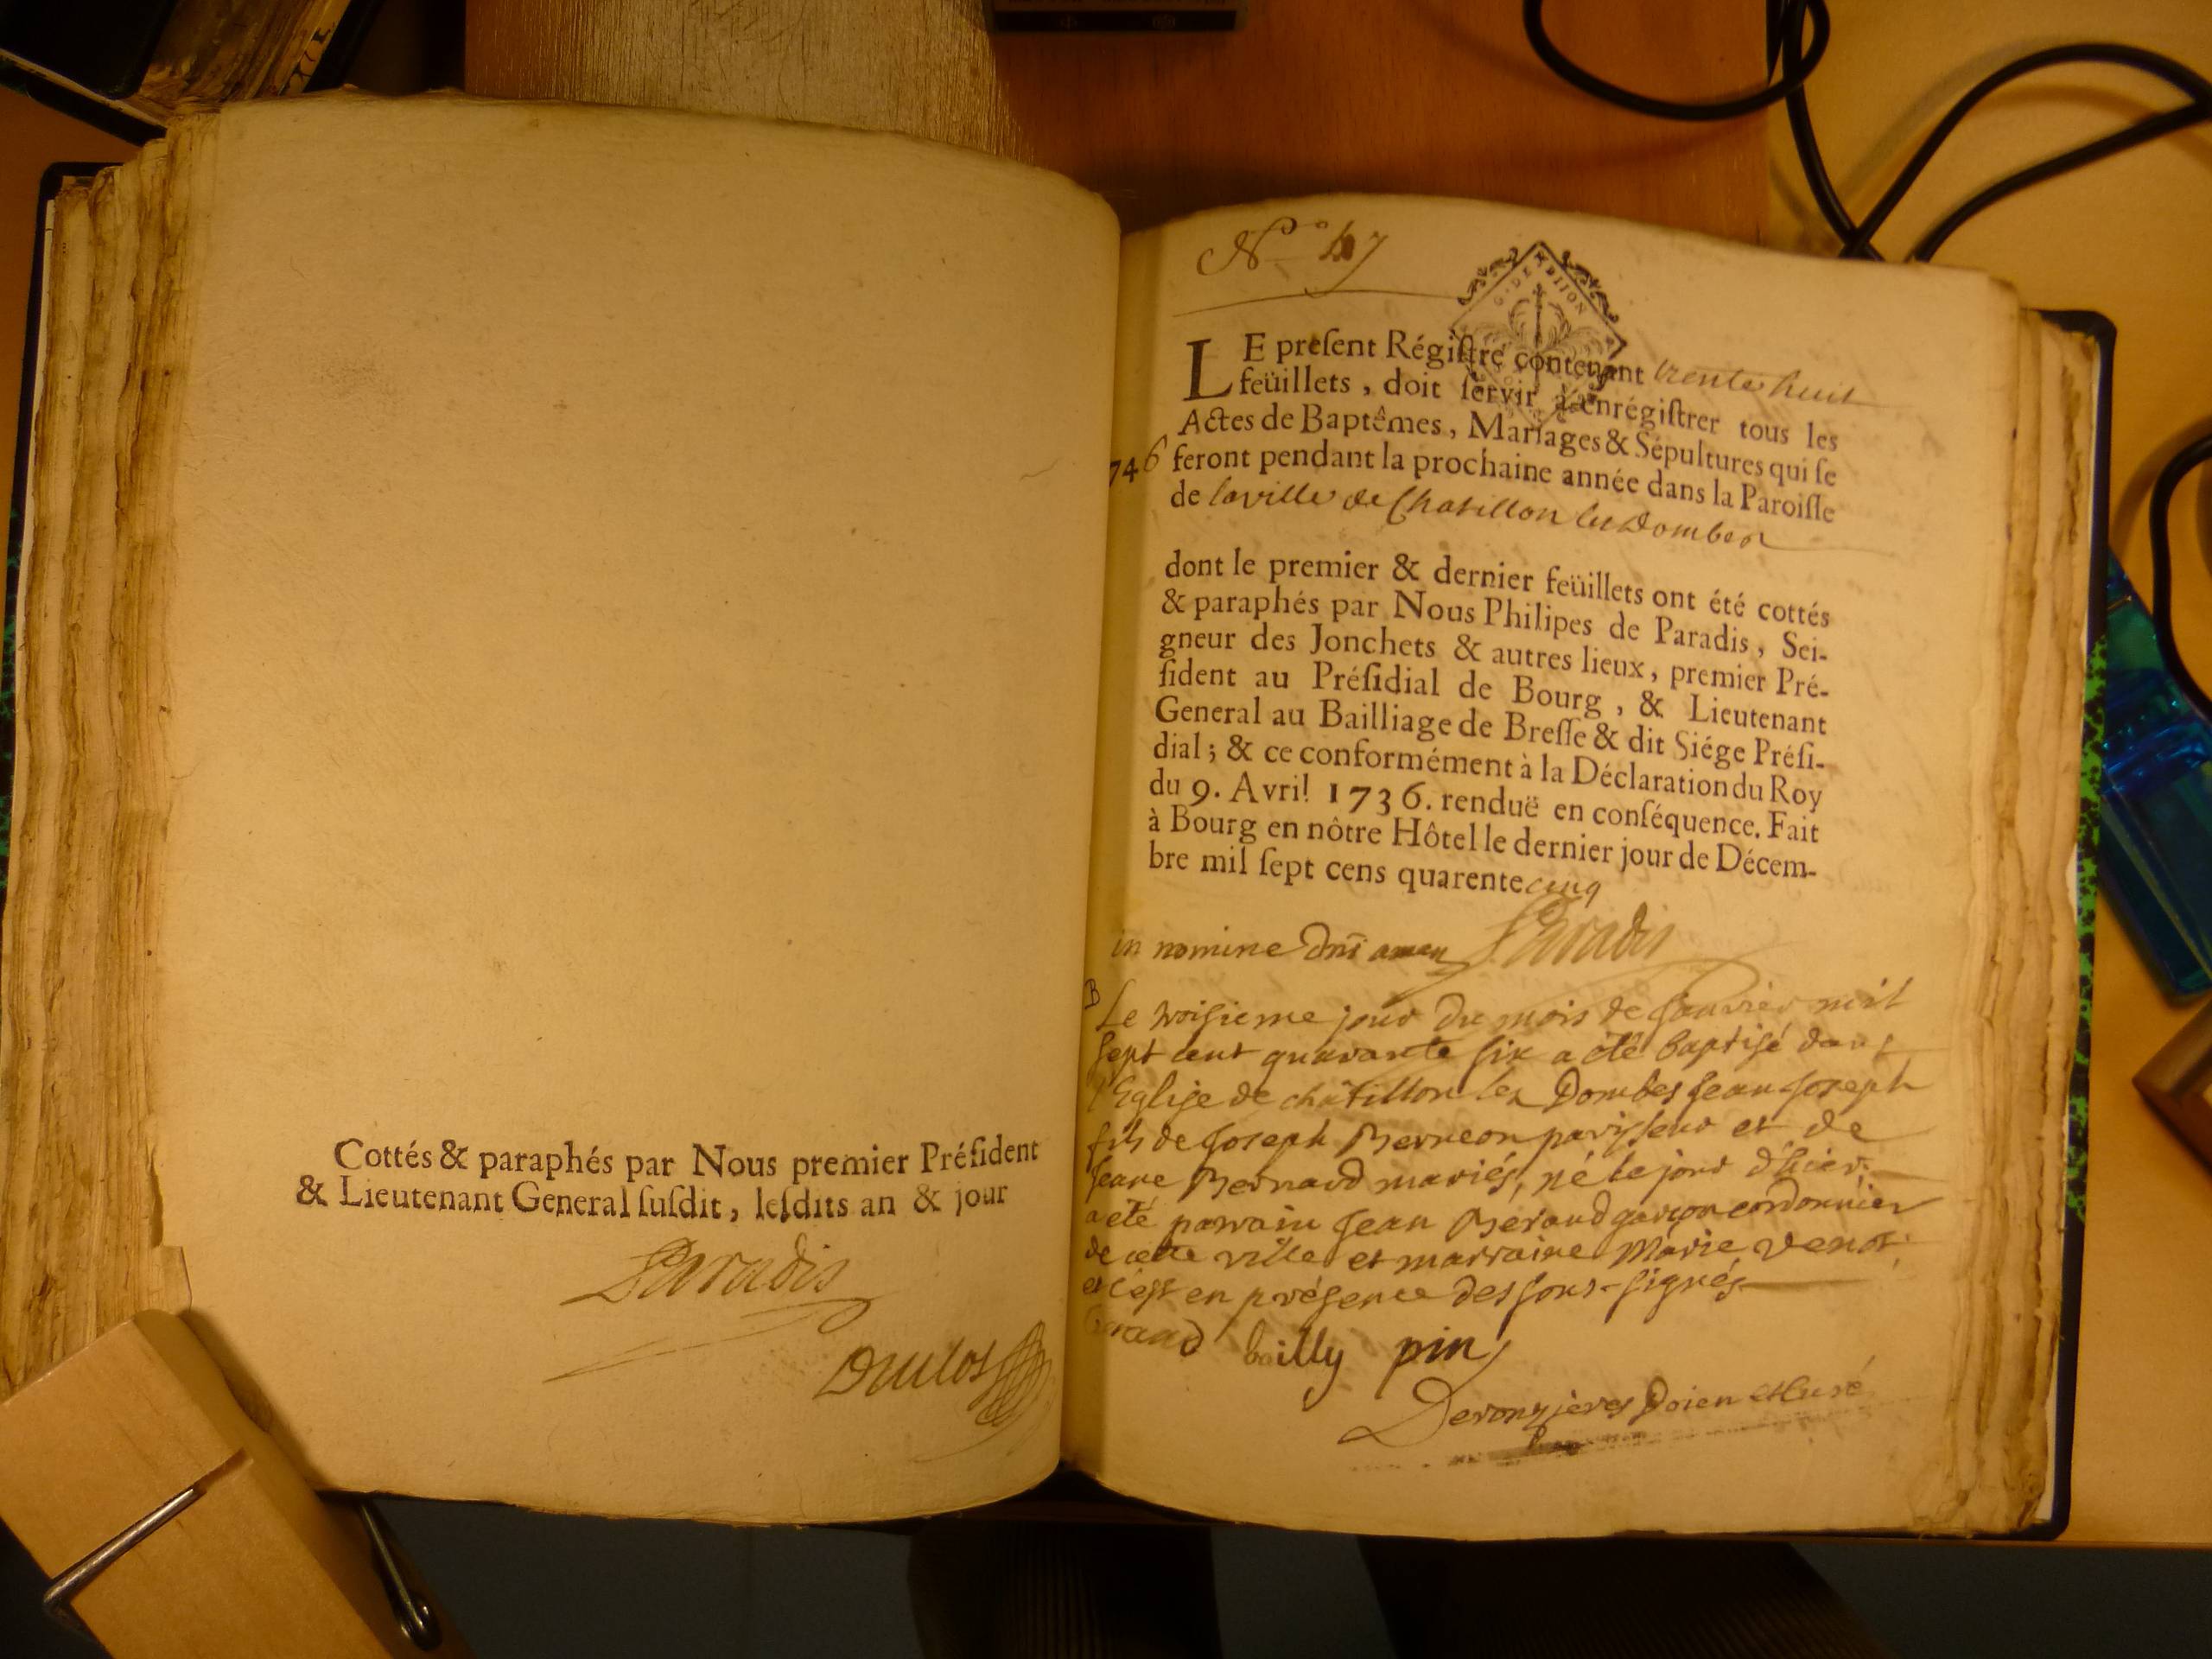 Cottés & paraphés par Nous premier Préſident
& Lieutenant General ſuſdit, leſdits an & jour
Paradis
N.º 47
G. DE DIJON
LE preſent Régiſtre contenant trente huit
feüillets, doit ſervir à enrégiſtrer tous les
Actes de Baptêmes, Mariages & Sépultures qui ſe
746 feront pendant la prochaine année dans la Paroiſſe
de la ville de Chatillon les Dombes
dont le premier & dernier feüillets ont été cottés
& paraphés par Nous Philipes de Paradis, Sei-
gneur des Jonchets & autres lieux, premier Pré-
ſident au Préſidial de Bourg, & Lieutenant
General au Bailliage de Breſſe & dit Siége Préſi-
dial; & ce conformément à la Déclaration du Roy
du 9. Avril 1736. renduë en conſéquence. Fait
à Bourg en nôtre Hôtel le dernier jour de Décem-
bre mil ſept cens quarente cinq
in nomine Dni amen Paradis
B
Le troisieme jour du mois de Janvier mil
sept cent quarante six a été baptisé dans
l'Eglise de châtillon les Dombes Jean Joseph
fils de Joseph et de
Jeane Bernard mariés, né le jour d'hier,
a été parrain Jean Beraud garçon cordonnier
de cette ville et marraine Marie
et c'est en présence des sous-signés
Beraud bailly pin
Deronzières Doien et Curé